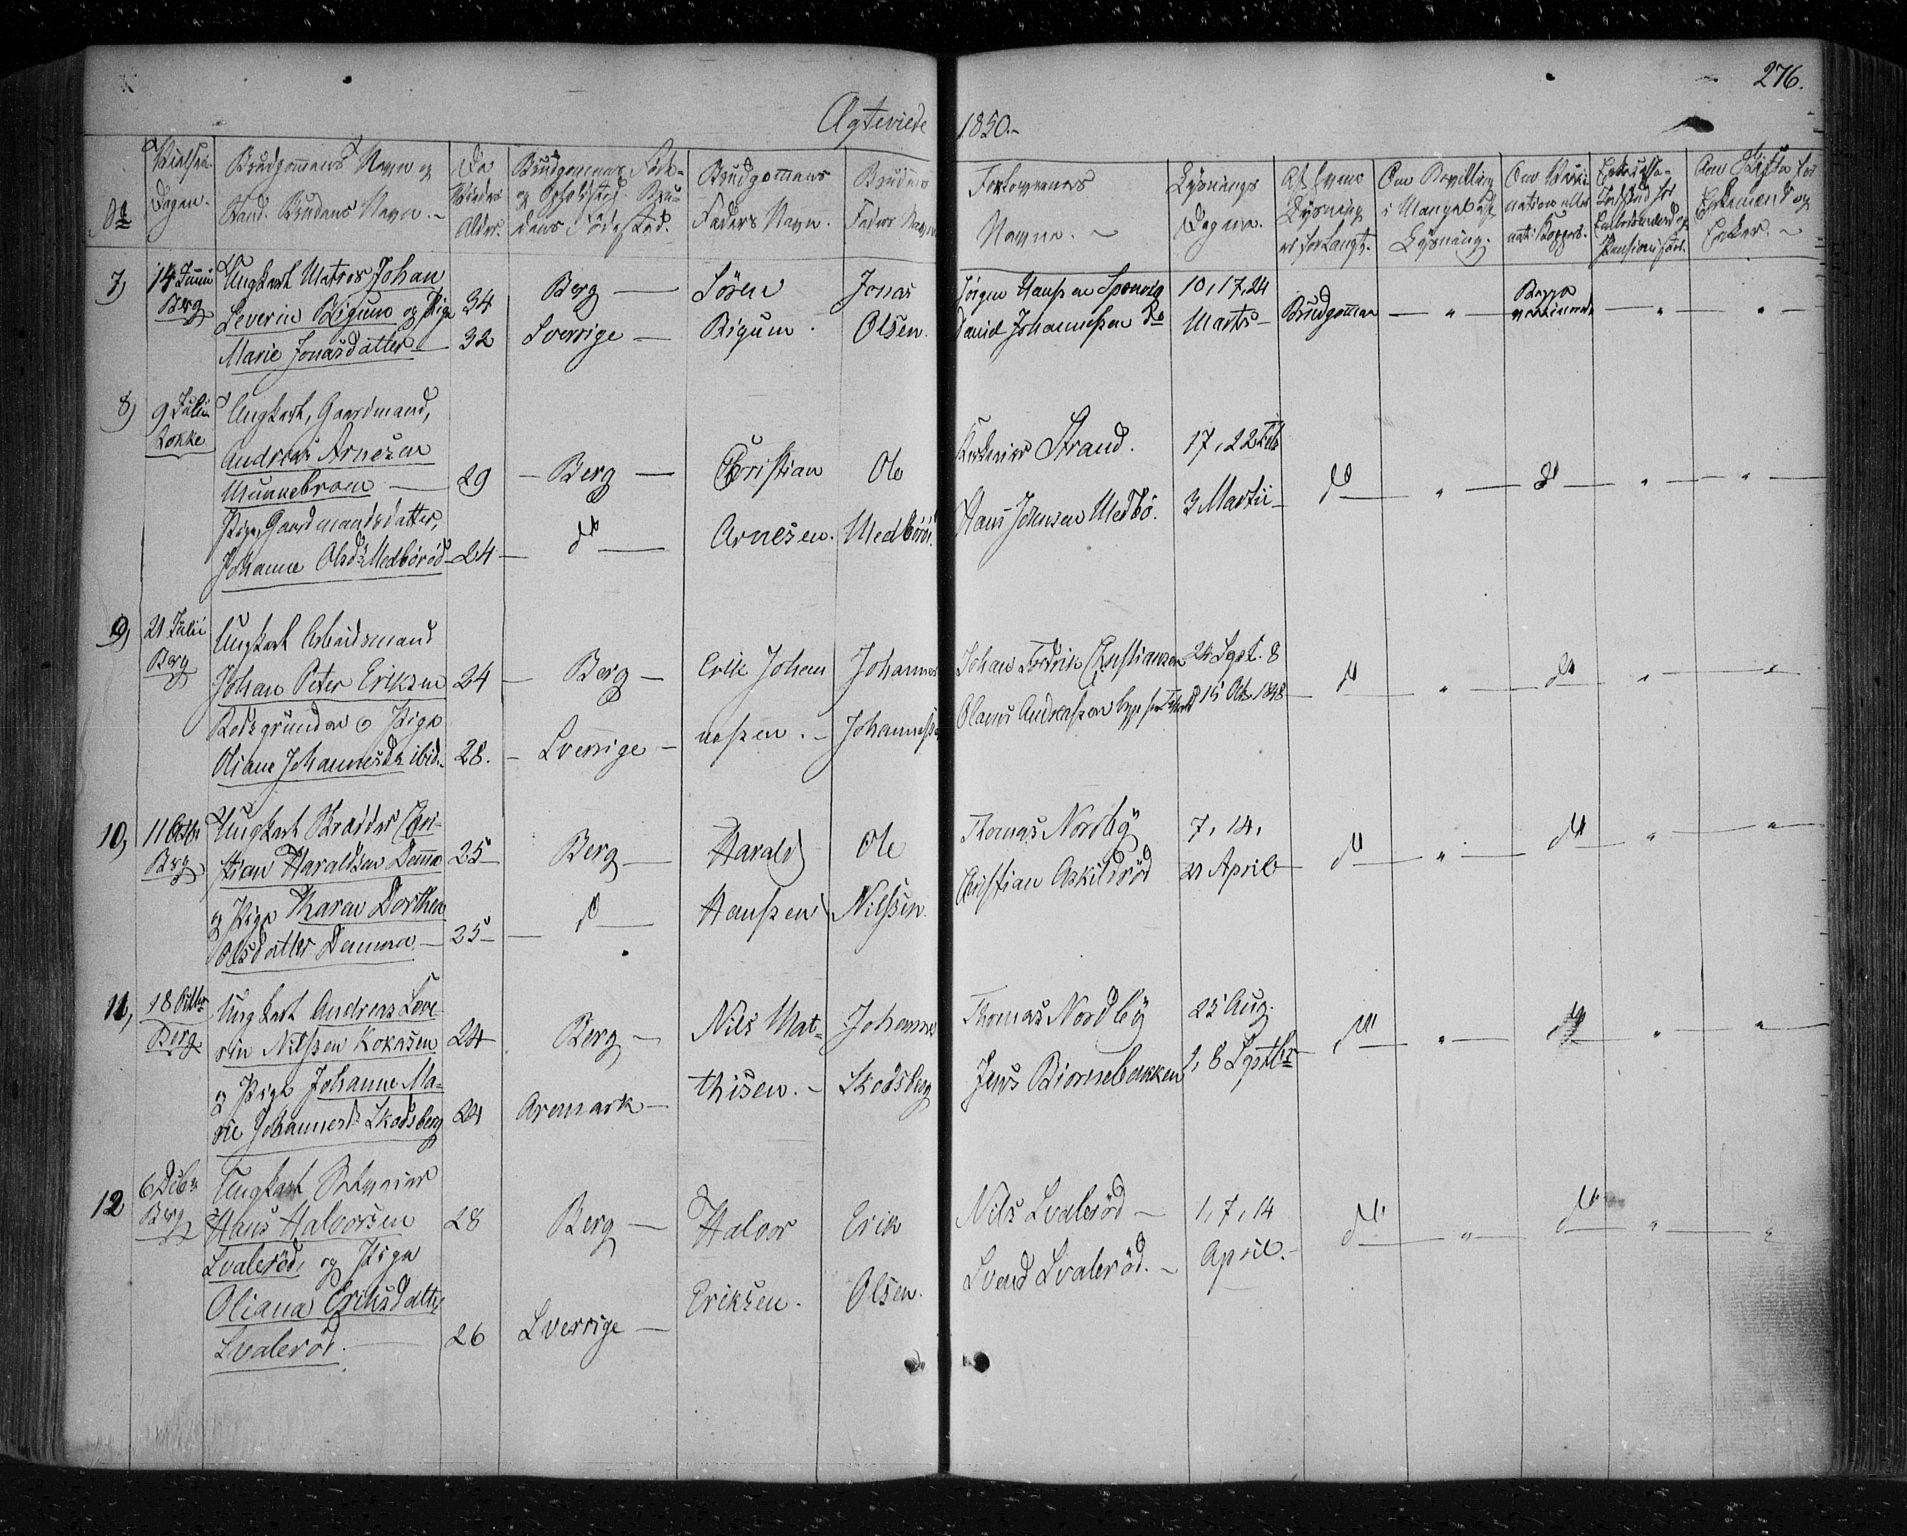 276.
Ægteviede 1850.-
No
Vielses-
Dagen.
Brudgommens Navn og
Stand. Brudens Navn.
De
Viedes
Alder.
Brudgommens Føde-
og Opholdsted. Bru-
dens Fødested.
Brudgommens
Faders Navn.
Brudens
Fader Navn
Forlovernes
Navne.
Lysnings
Dagene.
Af hvem
Lysning
er forlangt.
Om Bevilling
i Mangel af
Lysning.
Om Vacci
nation eller
nat: Kopper.
Om Skifte for
Enkemand og
Enker.
7, 14 Junii
Berg
Ungkarl Matros Johan
Leverin Bigum og Pige 34
Marie Jonasdatter 32
Berg
Sverrige
Sören
Bigum.
Jonas
Olsen.
Jörgen Hansen Sponvig
David Johannesen do
10, 17, 24
Marts
Brudgommen
8, 9 Julii
Lokke
Ungkarl, Gaardmand,
Andreas Arnesen
Munnebroen 29
Pige, Gaardmandsdatter,
Johanne Olsdr Medböröd 24
Berg
do
Christian
Arnesen.
Ole
Medböröd
Strand.
Hans Jensen Medbö.
17, 22 Feb
3 Martii
do
do
9, 21 Julii
Berg
Ungkarl Arbeidsmand
Johan Peter Eriksen 24
Bødsgrunden o Pige
Oliane Johannesdr ibid. 28.
Berg
Sverrige
Erik Johan
nesen.
Johannes
Johannesen
Johan Fredrik Christiansen
Olaus Andreasen
24 Sept. 8
15 Octr 1848
do
do
10, 11 Octbr
Berg
Ungkarl Chri-
stian Haraldsen Demma 25
og Pige Karen Dorthea
Olsdatter Demma 25
Berg
do
Harald
Hansen
Ole
Nilsen.
Thomas Nordby
Christian Askildröd
7, 14,
21 April
do
do
11, 18 Octbr
Berg
Ungkarl Andreas Seve-
rin Nilsen Kokasen 24
og Pige Johanne Ma-
rie Johannesdr Skodsberg 24
Berg
Aremark
Nils Mat-
thisen.
Johannes
Skodsberg
Thomas Nordby
Jens Biornebakken
25 Aug.
1, 8 Septbr
do
do
12 6 Decbr
Berg
Ungkarl
Hans Halvorsen 28
Svaleröd, og Pige
Oliana Eriksdatter
Svaleröd. 26
Berg
Sverrige
Halvor
Eriksen.
Erik
Olsen.
Nils Svaleröd
Svend Svaleröd.
1, 7, 14
April.
do
do